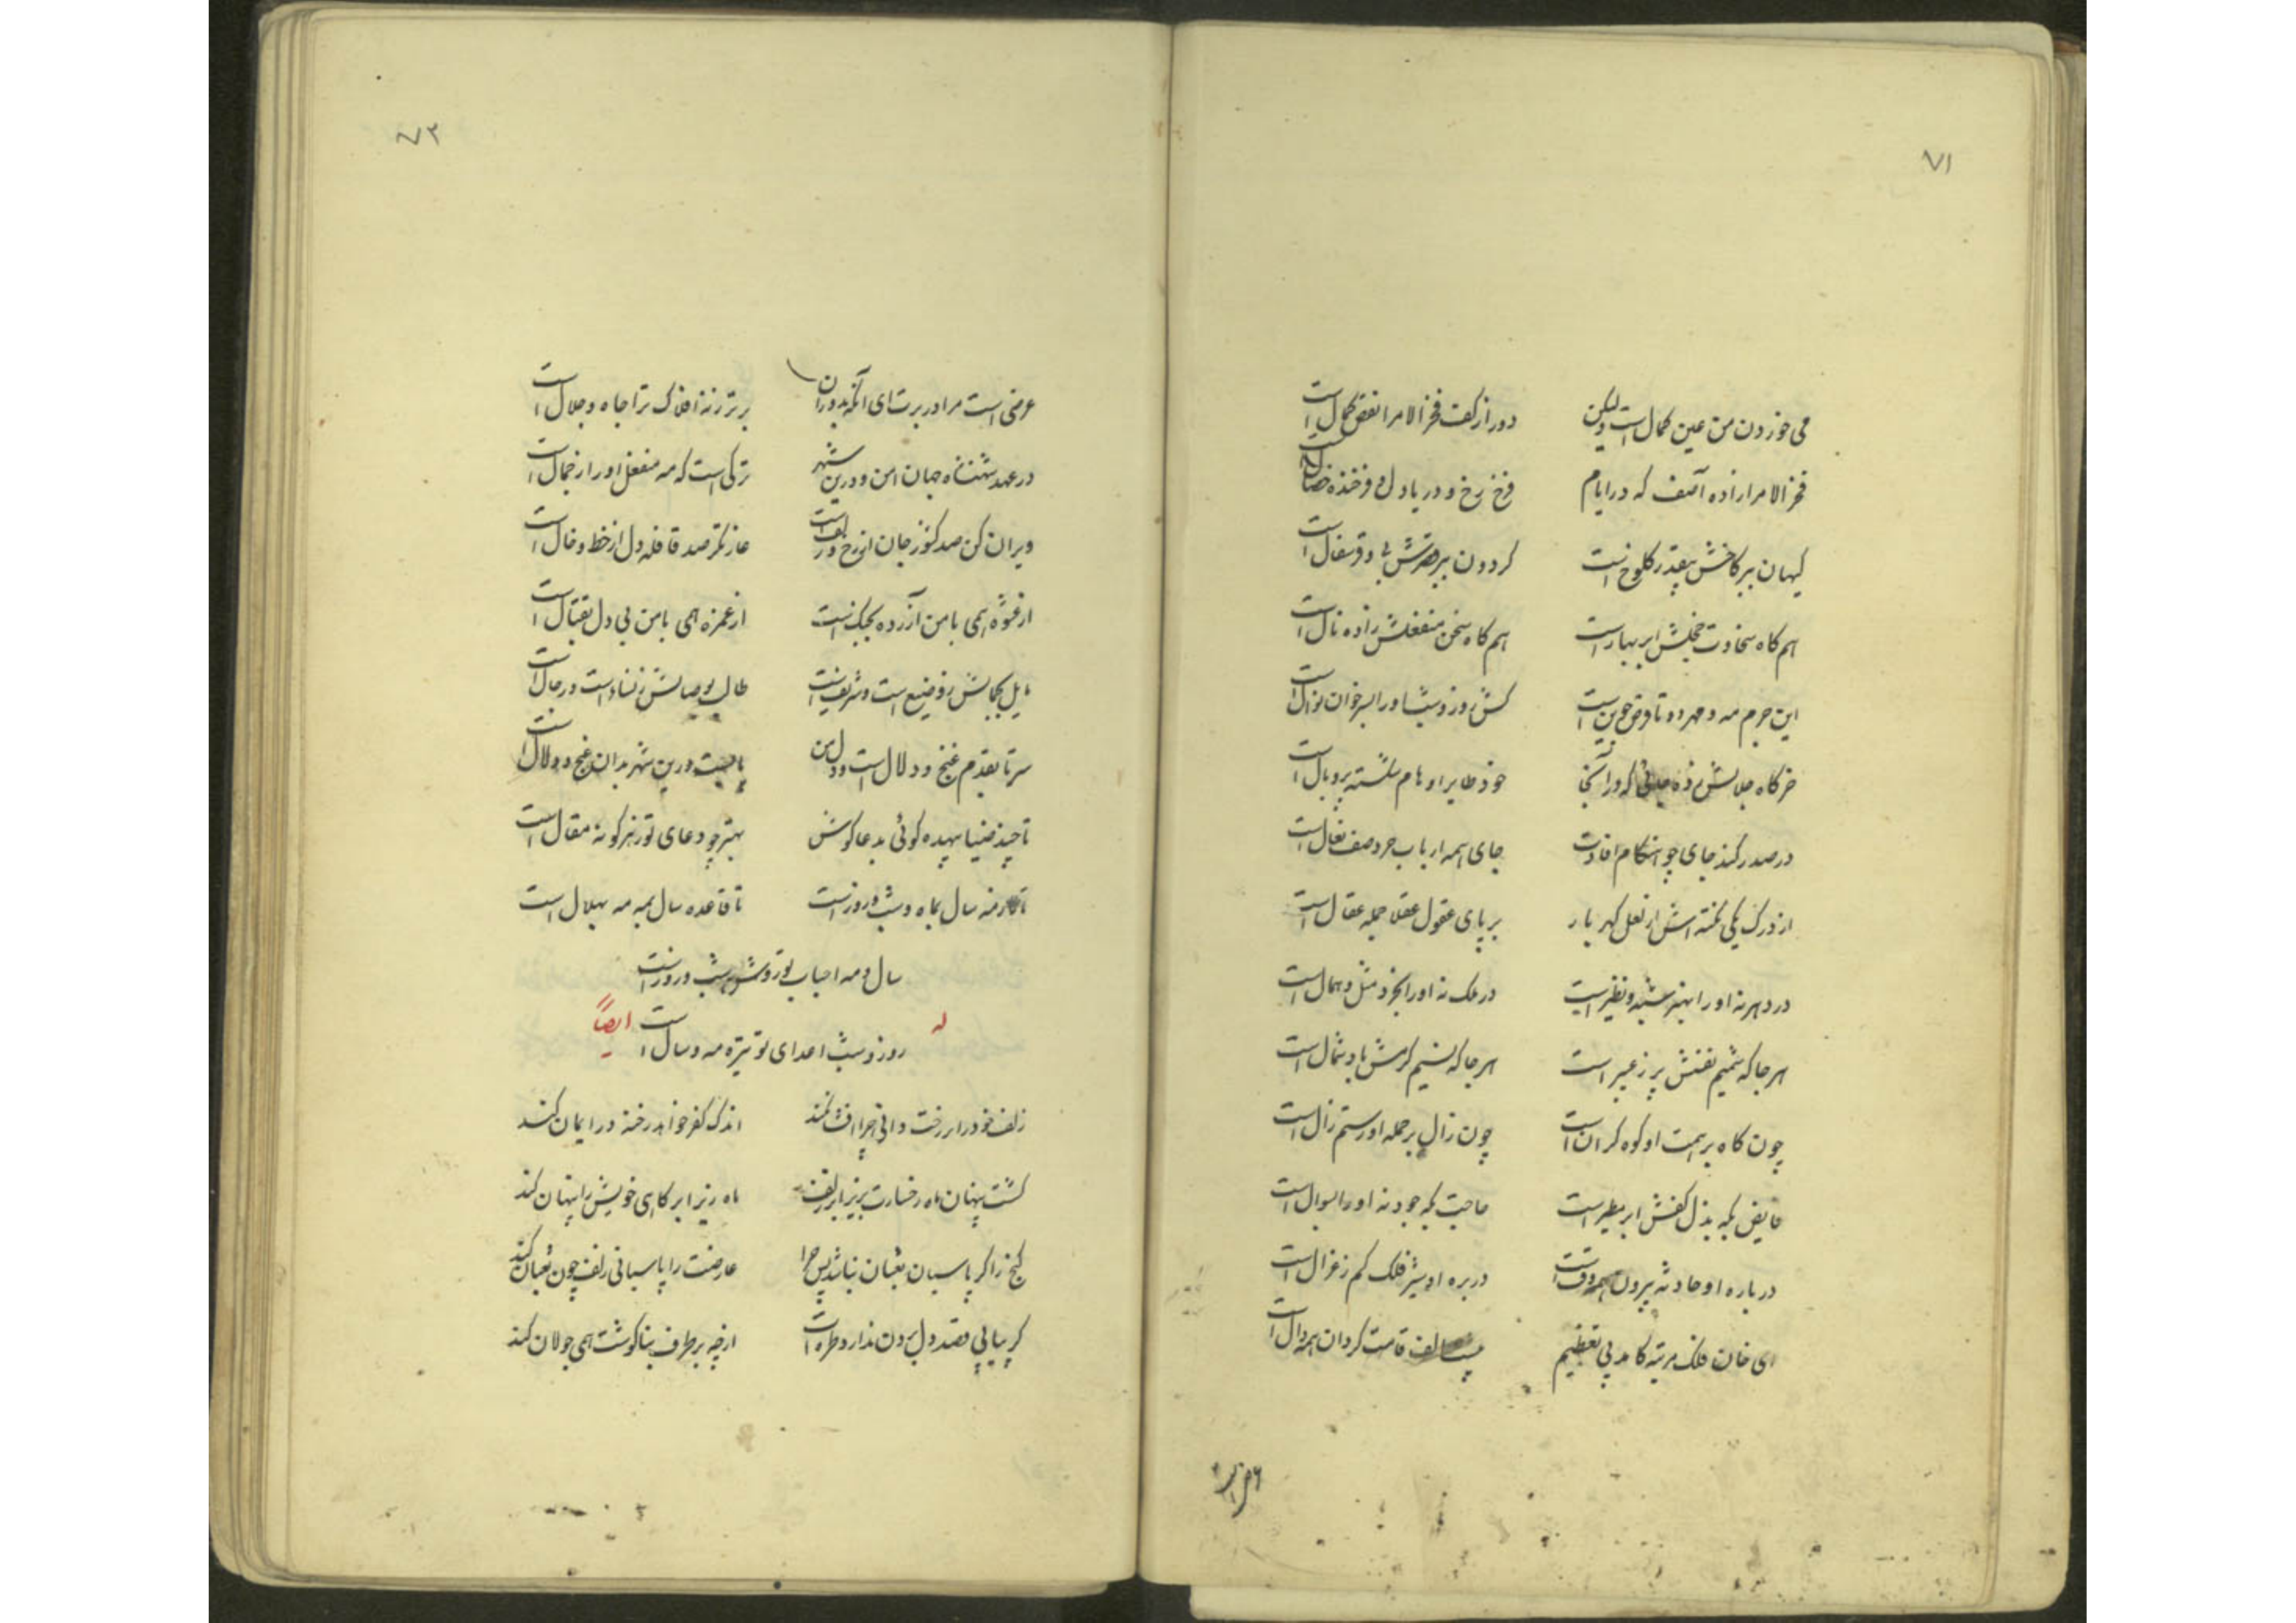 ۷۱
می خوردن من عین کمال است ولیکن دور از کف فخر الامرا نقص کمال است
فخر الامرا زاده آصف که در ایام فرخ رخ و دریا دل و فرخنده خصال است
کیهان ببر کاخش بیقدر کلوخ است کردون ببر قدرش بی وقر سفال است
هم کاه سخاوت خجلش ابر بهار است هم کاه سخن منفعلش زاده نال است
این جرم مه و مهر دو تا قرص جوین است کش روز و شب اورا بسر خوان نوال است
خرکاه جلالش زده جائی که در آنجا خود طایر اوهام شکسته پر و بال است
در صدر کند جای چو هنکام افادت جای همه ارباب خرد صف نعال است
از درک یکی نکته اش از لعل کهر بار بر پای عقول عقلا جمله عقال است
در دهر نه اورا بهنر شبه و نظیر است در ملک نه اورا بخرد مثل و همال است
هر جا که شمیم نفسش پر ز عبیر است هر جا که نسیم کرمش باد شمال است
چون کاه بر همت او کوه کران است چون زال بر حمله او رستم زال است
فایض بکه بذل کفش ابر مطیر است حاجت بکه جود نه اورا بسوال است
در باره او حادثه بیرون همه وقت است در بره او شیر فلک کم ز غزال است
ای خان فلک مرتبه کامد پی تعظیم پیشت الف قامت کردان همه دال است
۷۳
عرضی است مرا در برت ای آنکه بدوران برتر ز نه افلاک ترا جاه و جلال است
در عهد شهنشاه جهان امن و درین شهر ترکی است که مه منفعل اورا ز جمال است
ویران کن صد کنوز جان از رخ و زلف است غارتکر صد قافله دل از خط و خال است
از عشوه همی با من آزرده بجنک است از غمزه همی با من بی دل بقتال است
مایل بجمالش ز وضیع است و شریف است طالب بوصالش ز نساء است و رجال است
سر تا بقدم غنج و دلال است و دل من پابست درین شهر بدان غنج و دلال است
تا چند ضیا بیهده کوئی بدعا کوش بهتر چو دعای تو ز هر کونه مقال است
سال بماه و شب و روز است تا قاعده سال بمه مه بهلال است
سال و مه احباب تو روشن و شب و روز است
له روز و شب اعدای تو تیره مه و سال است ایضاً
زلف خود را بر رخت دانی چرا افشان کند اندک کفر خواهد رخنه در ایمان کند
کشت پنهان ماه رخسارت بزیر ابر زلف ماه زیر ابر کاهی خویش را پنهان کند
کنج را کر پاسبان ثعبان نباشد پس چرا عارضت را پاسبانی زلف چون ثعبان کند
کر بیابی قصد دل بردن ندارد طره ات از چه بر طرف بناکوشت همی جولان کند